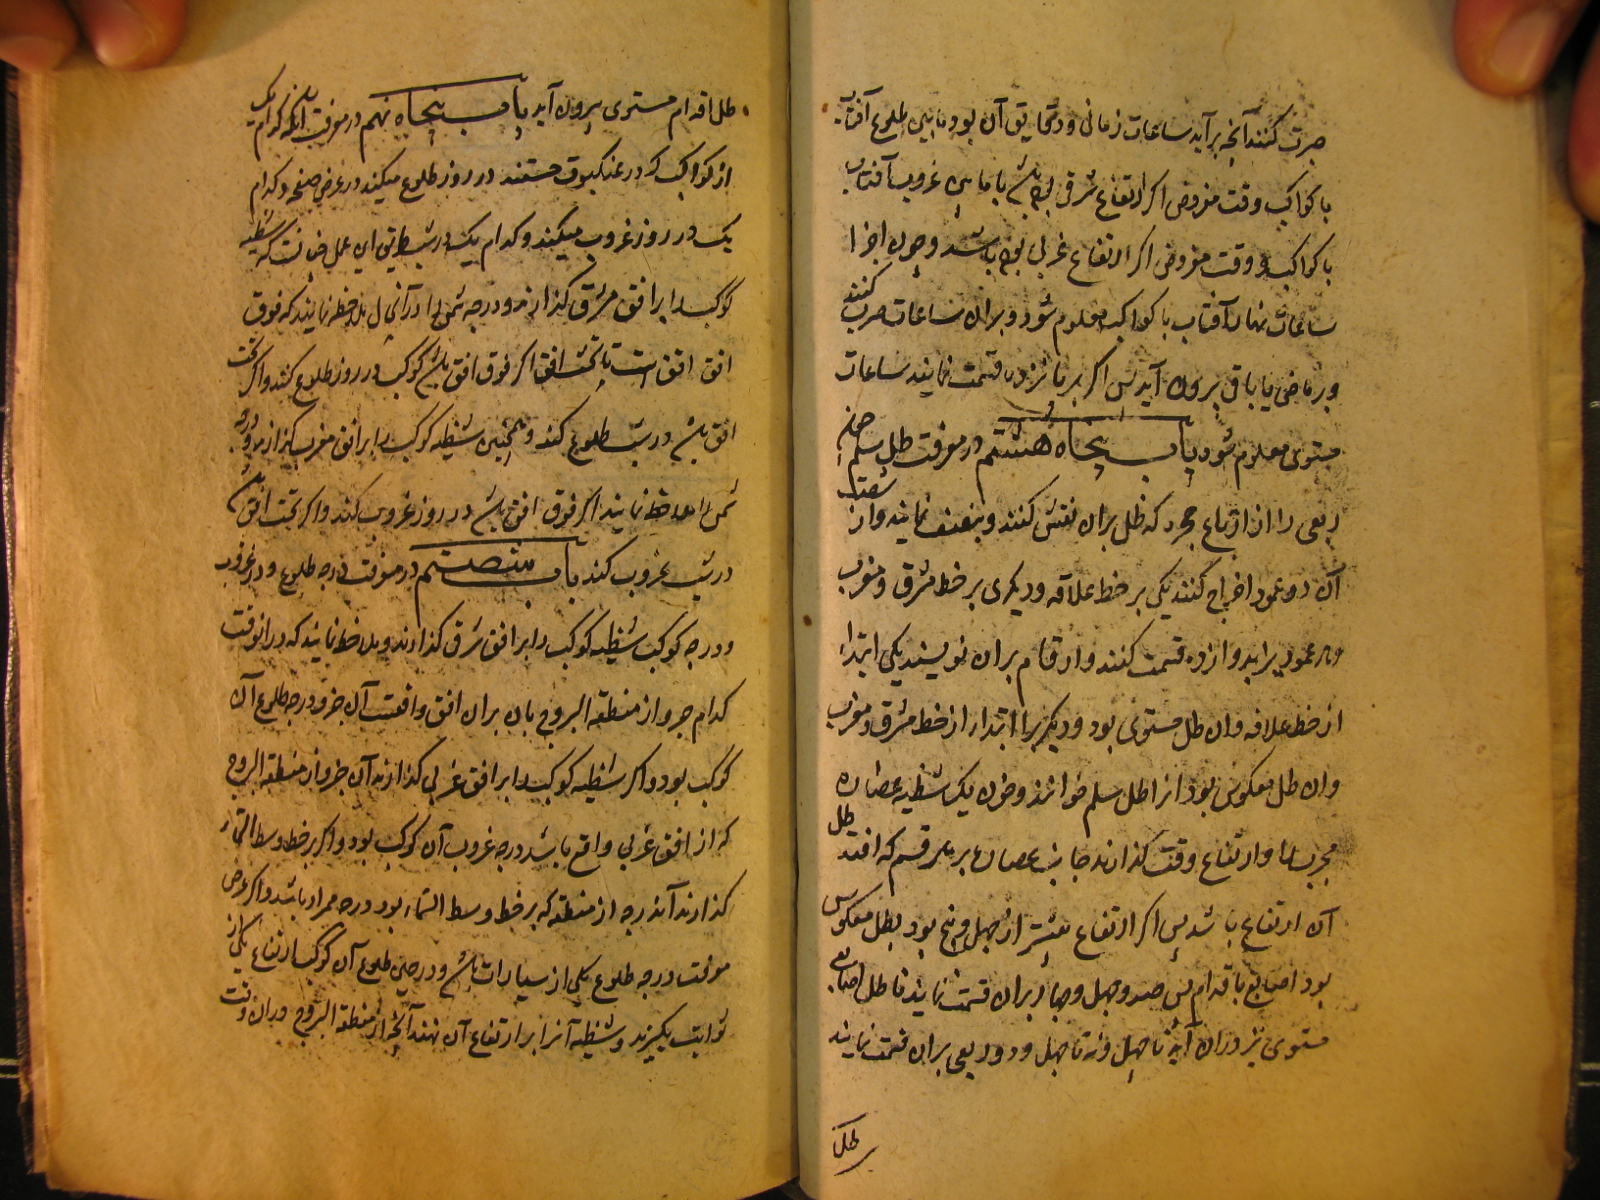 صرف کنند آنچه برآید ساعات زمانی و دقایق آن بود مابین طلوع آفتاب
یا کواکب وقت مفروض اگر ارتفاع شرقی بوده باشد یا مابین غروب آفتاب
یا کواکب و وقت مفروض اگر ارتفاع غربی بوده باشد و چون اجزا
ساعات نهار آفتاب یا کواکب معلوم شود و بران ساعات صرف کنند
ماضی یا باقی برون آید پس اگر بر پانزده قسمت نمایند ساعات
مستوی معلوم شود باب پنجاه هشتم در معرفت ظل سلم
ربعی را از ارباع حجره که ظل بران نقش کنند و بنصف نمایند و از
آن دو عمود اخراج کنند یکی بر خط علاقه و دیگری بر خط مشرق و مغرب
هر عمود را بدوازده قسمت کنند و ارقام بران نویسند یکی ابتدا
از خط علاقه و ان ظل مستوی بود و دیگریرا ابتدا از خط مشرق و مغرب
و ان ظل معکوس بود انرا ظل سلم خوانند و چون یک شظیه عضاده
بر ارتفاع وقت گذارند جانب عضاده بر هر قسم که افتد ظل
آن ارتفاع باشد پس اگر ارتفاع بیشتر از چهل و پنج بود بظل معکوس
بود اصابع یا قدام پس صد و چهل و چهار بران قسمت نمایند تا ظل اصابع
مستوی برون آید تا چهل و نه تا چهل و دو و ربعی بران قسمت نمایند
ظل
ظل اقدام مستوی برون آید باب پنجاه نهم در معرفت آنکه کدام یک
از کواکب که در عنکبوت هستند در روز طلوع میکند در عرض صفحه و کدام
یک در روز غروب میکند و کدام یک در شب طریق این عمل چنانست که شظیه
کوکب را بر افق مشرق گذارند و درجه شمس را در آنحال ملاحظه نمایند که فوق
افق است یا تحت افق اگر فوق افق باشد کوکب در روز طلوع کند و اگر تحت
افق باشد در شب طلوع کند و همچنین شظیه کوکب را بر افق مغرب گذارند و درجه
شمس را ملاحظه نمایند اگر فوق افق باشد در روز غروب کند و اگر تحت افق باشد
در شب غروب کند باب شصتم در معرفت درجه طلوع و درجه غروب
و درجه کوکب شظیه کوکب را بر افق شرقی گذارند و ملاحظه نمایند که در انوقت
کدام جزو از منطقه البروج بران افق واقعست آن جزو درجه طلوع آن
کوکب بود و اگر شظیه کوکب را بر افق غربی گذارند آن جزو از منطقه البروج
که از افق غربی واقع باشد درجه غروب آن کوکب بود و اگر بر خط وسط السماء
گذارند آندرجه از منطقه که بر خط وسط السماء بود درجه ممر او باشد و اگر غرض
معرفت درجه طلوع یکی از سیارات باشد در حین طلوع آن کوکب ارتفاع یکی از
ثوابت بگیرند و شظیه آنرا بر ارتفاع آن نهند آنچه از منطقه البروج دران وقت